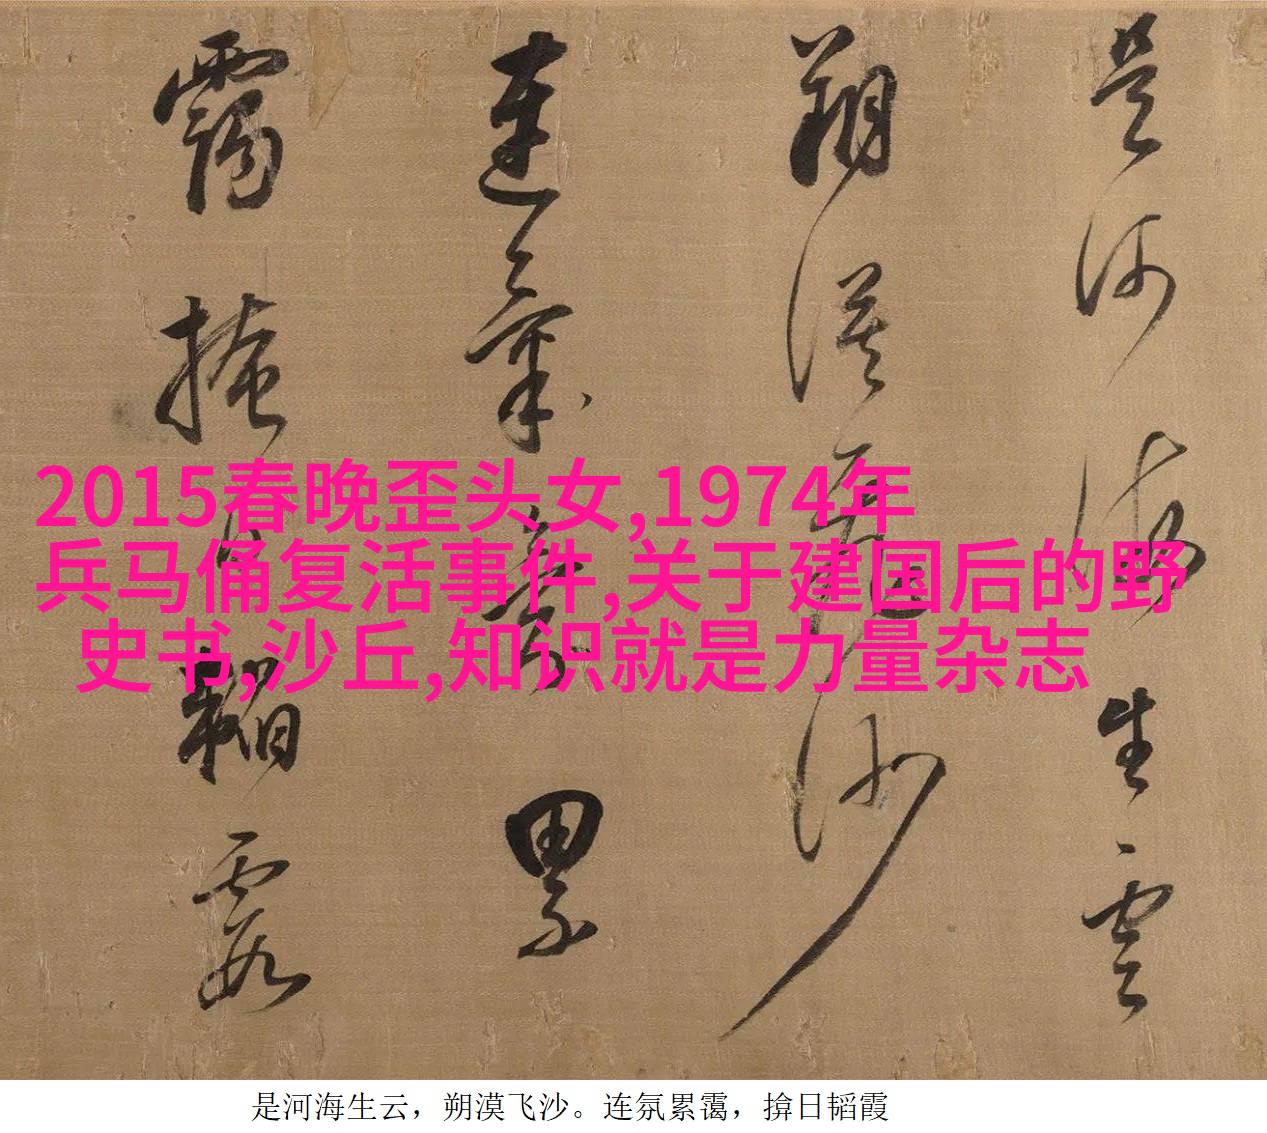 是河海生雲
朔漠飛沙
連氣霱累
靄掩日韜霞
2015春晚歪头女,1974年
兵马俑复活事件,关于建国后的野
史书,沙丘,知识就是力量杂志
是河海生云，朔漠飞沙。连氛累霭，揜日韬霞